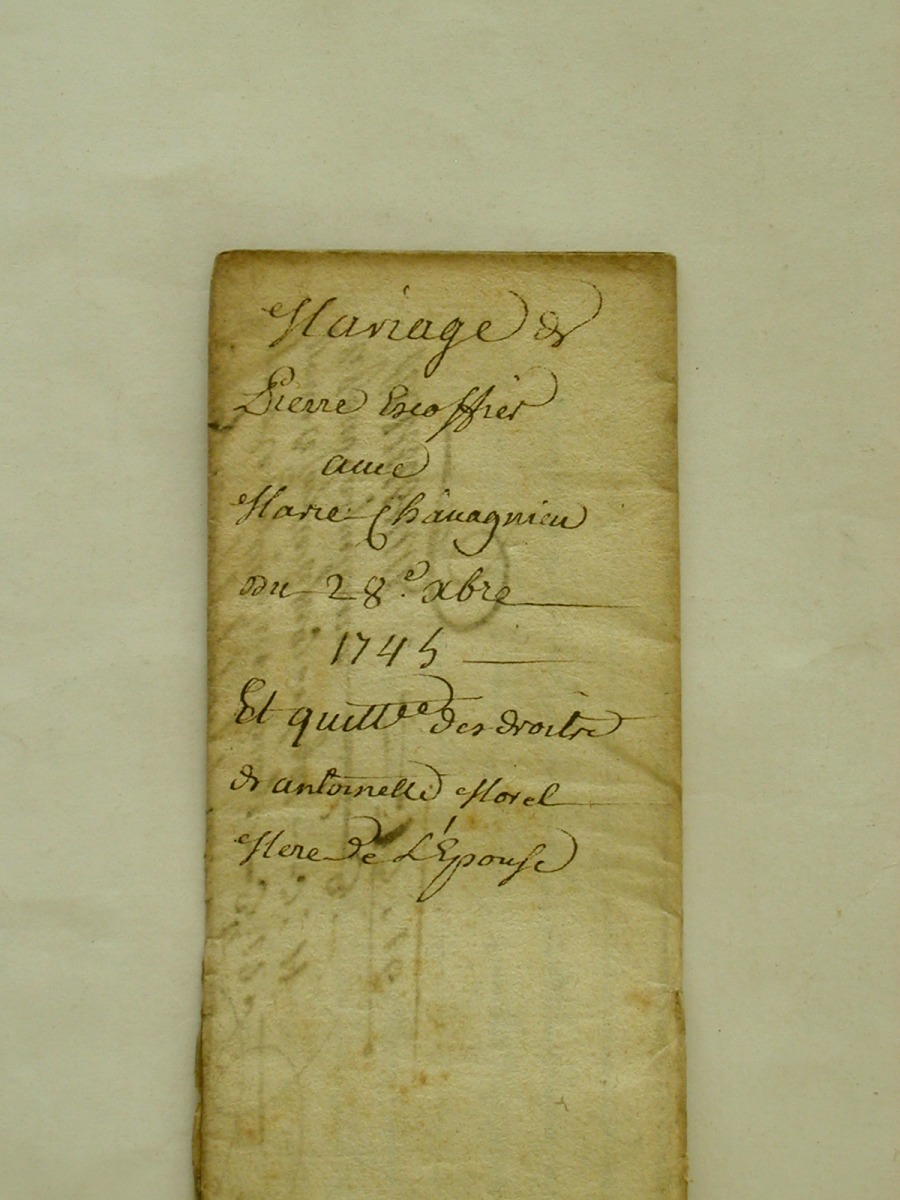 Mariage de
Pierre Escoffier
avec
Marie Chavagnieu
du 28e. xbre
1745
Et quittce des droits
de antoinette Morel
Mere de L'Epouse